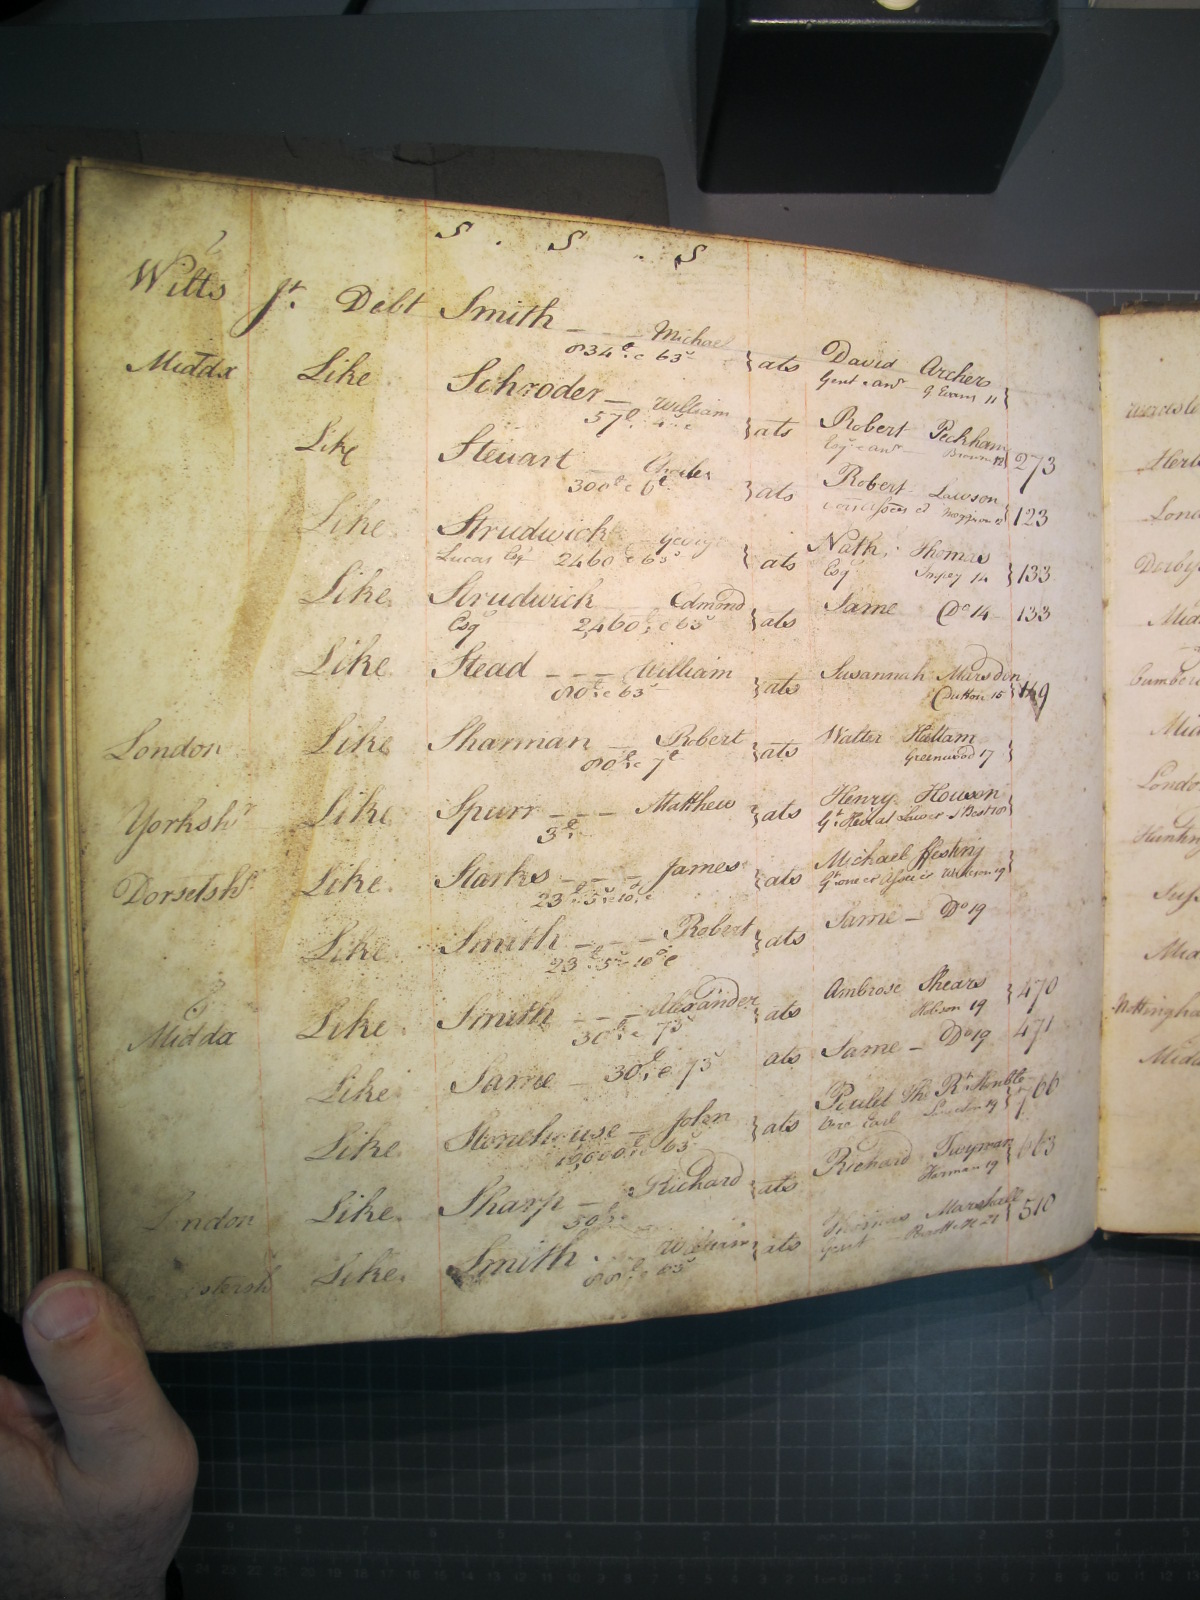 S . S . S
Wilts Jt. Debt Smith - - - Michael } ats David Archers }
834£ : c 63s Gent & an° G Evans 11
Middx Like Schroder - William } ats Robert Peckham } 273
57£ Esqr & an° Brown 12
Like Steuart - Charles } ats Robert Lawson } 123
300£ c 6£
Like Strudwick George } ats Nath: Thomas } 133
Lucas Esqr 2460£ c 63s Esqr Impey 14
Like Strudwick Edmond } ats Same Do 14 133
Esqr 2,460£ : c 63s
Like Stead - - - William } ats Susannah Marsdon } 149
80£ : c 63s Dutton 15
London Like Sharman - Robert } ats Walter Hallam }
80£ : c 7£ Greenwood 17
Yorkshr Like Spurr - - - Matthew } ats Henry Howson }
3£ :
Dorsetshr Like Starks - - - James } ats Michael ffestinj }
23£ : 5s : 10d : c
Like Smith - - - Robert } ats Same - Do 19
23£ : 5s : 10d c
Middx Like Smith - - - Alexander } ats Ambrose Shears } 470
30£ : c 73s Hobson 19
Like Same - 30£ : c 73s ats Same - Do 19 471
Like Stonehouse - John } ats Poulet The Rt Honble } 766
10,000£ : c 63s Earl 19
London Like Sharp - Richard } ats Richard Twyman } 663
50£ : Harman 19
Like Smith - - William } ats Thomas Marshall } 510
80£ : c 63s Gent 21